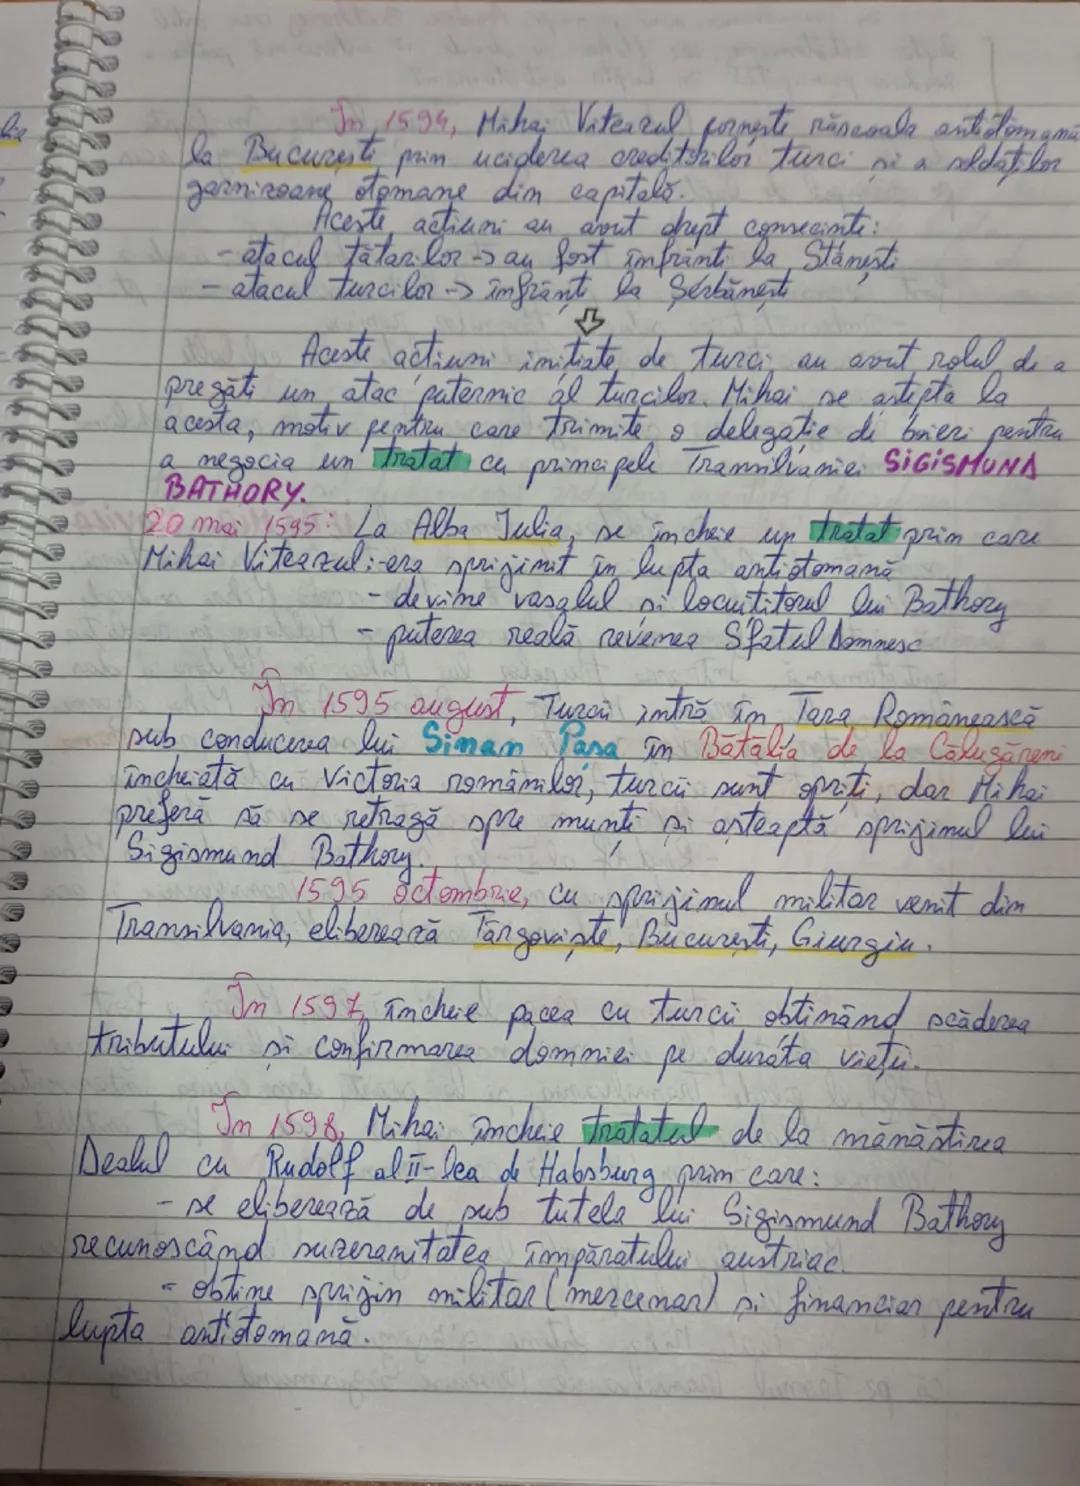 În 1594, Mihai Viteazul pornește răscoala antiotomană
la București prin uciderea creditorilor turci și a soldaților
garnizoanei otomane din capitală.
Aceste acțiuni au avut drept consecințe:
- atacul tătarilor -> au fost înfrânți la Stănești
- atacul turcilor -> înfrânți la Șerbănești
Aceste acțiuni inițiate de turci au avut rolul de a
pregăti un atac puternic al turcilor. Mihai se aștepta la
acesta, motiv pentru care trimite o delegație de boieri pentru
a negocia un tratat cu principele Transilvaniei SIGISMUND
BATHORY.
20 mai 1595: La Alba Iulia, se încheie un tratat prin care
Mihai Viteazul: - era sprijinit în lupta antiotomană
- devine vasalul și locuitorul lui Bathory
- puterea reală revenea Sfatul Domnesc
În 1595 august, Turcii intră în Țara Românească
sub conducerea lui Sinan Pașa în Bătălia de la Călugăreni
încheiată cu Victoria românilor, turcii sunt opriți, dar Mihai
preferă să se retragă spre munți și așteaptă sprijinul lui
Sigismund Bathory.
1595 octombrie, cu sprijinul militar venit din
Transilvania, eliberează Târgoviște, București, Giurgiu.
În 1597, încheie pacea cu turcii obținând scăderea
tributului și confirmarea domniei pe durata vieții.
În 1598, Mihai încheie tratatul de la mănăstirea
Dealul cu Rudolf al II-lea de Habsburg prin care:
- se eliberează de sub tutela lui Sigismund Bathory
recunoscând suzeranitatea împăratului austriac.
- obține sprijin militar (mercenari) și financiar pentru
lupta antiotomană.